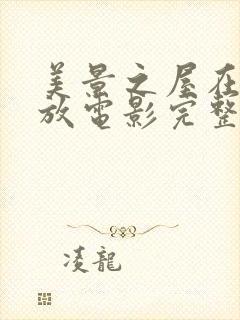 美景之屋在
放电影完整
凌龍